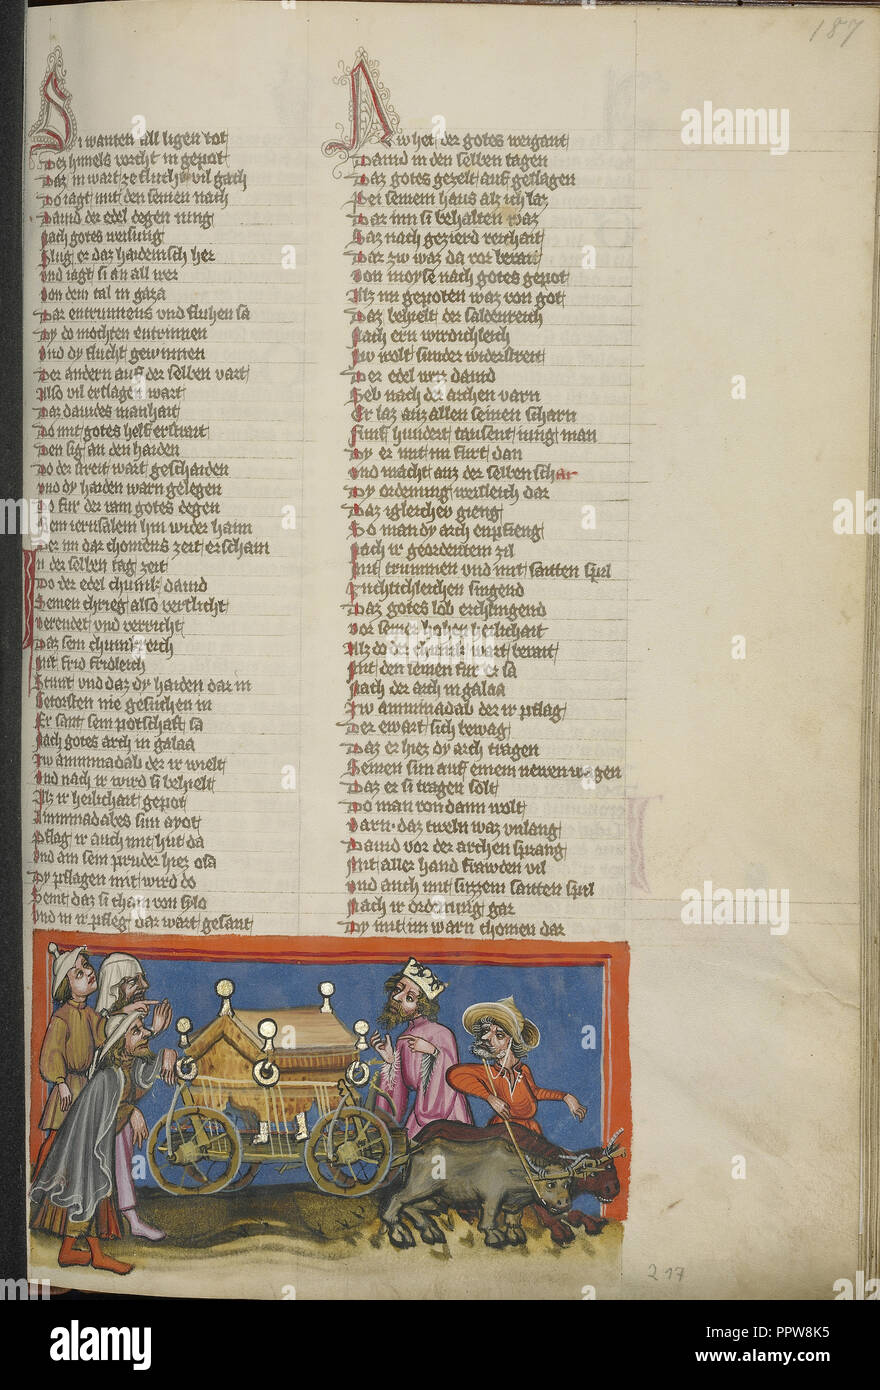 187
Si wanten all ligen tot
Dez himels vorcht in gepot
Daz in wart ze fluchte vil gach
Do iagt mit den seinen nach
Dauid der edel degen iung
Nach gotes weisung
Slug er daz haidenisch her
Vnd iagt si an all wer
Von dem tal in gaza
Dar entrunnens vnd fluhen sa
Dy do mochten entrinnen
Vnd dy flucht gewinnen
Der andern auf der selben vart
Also vil erslagen wart
Daz dauides manhait
Do mit gotes helf erstrait
Den sig an den haiden
Do der streit wart geschaiden
Vnd dy haiden warn gelegen
Do fur der gotes degen
Gem ierusalem hin wider haim
Der im dar chomens zeit erschain
In der selben tag zeit
Do der edel chunk dauid
Seinen chrieg also verslicht
Verendet vnd verricht
Daz sein chunicreich
Mit frid fridleich
Stunt vnd daz dy haiden dar in
Getorsten nie gesuchen in
Er sant sein potschaft sa
Nach gotes arch in galaa
Iw aminnadab der ir wielt
Vnd nach ir wird si behielt
Alz ir heilichait gepot
Aminnadabes sun ayot
Pflag ir auch mit hut da
Vnd ain sein pruder hiez osa
Dy pflagen mit wird do
Seint daz si cham von sylo
Vnd in ir pfleg dar wart gesant
Nw het der gotes weigant
Dauid in den selben tagen
Daz gotes gezelt auf geslagen
Pei seinem haus alz ich laz
Dar inn si behalten waz
Daz nach gezierd reichait
Dar zw waz da vor berait
Von moyse nach gotes gepot
Alz im gepoten waz von got
Daz behielt der saldenreich
Nach ern wirdichleich
Nw wolt sunder widerstreit
Der edel wert dauid
Selb nach der archen varn
Er laz auz allen seinen scharn
Funf hundert tausent iung man
Dy er mit im furt dan
Vnd macht auz der selben schar
Dy ordenung weisleich dar
Daz igleicher gieng
So man dy arch enpfieng
Nach ir geordentem zil
Mit trummen vnd mit saiten spil
Zuchtichleichen singend
Daz gotes lob erchlingend
Vor seiner hohen heilichait
Alz do der chunk wart berait
Mit den seinen fur er sa
Nach der arch in galaa
Iw aminnadab der ir pflag
Der ewart sich bewag
Daz er hiez dy arch tragen
Seinen sun auf einem newen wagen
Daz er si tragen solt
Do man von dann wolt
Varn daz tweln waz vnlang
Dauid vor der archen sprang
Mit aller hand frawden vil
Vnd auch mit suzzem saiten spil
Nach ir ordenung gar
Dy mit im warn chomen dar
217
alamy
a
alamy
Image ID: PPW8K5
www.alamy.com